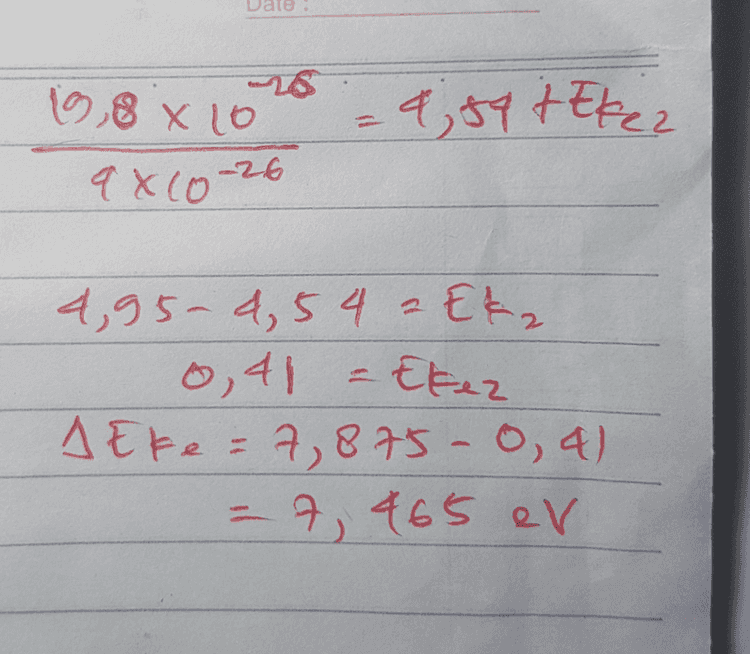 Date :
19,8 × 10^-26 / 4 × 10^-26 = 4,54 + Eke2
4,95 - 4,54 = Ek2
0,41 = Eke2
ΔEke = 7,875 - 0,41
= 7,465 eV